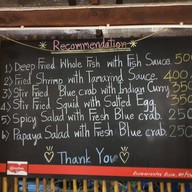 Recommendation
1) Deep Fried Whole Fish with Fish Sauce. 500
2) Fried Shrimp with Tamarind Sauce. 400
3) Stir Fried Blue crab with Indian Curry 350
4) Stir Fried Squid with Salted Egg. 350
5) Spicy Salad with Fresh Blue crab. 250
6) Papaya Salad with Fresh Blue crab. 250
Thank You